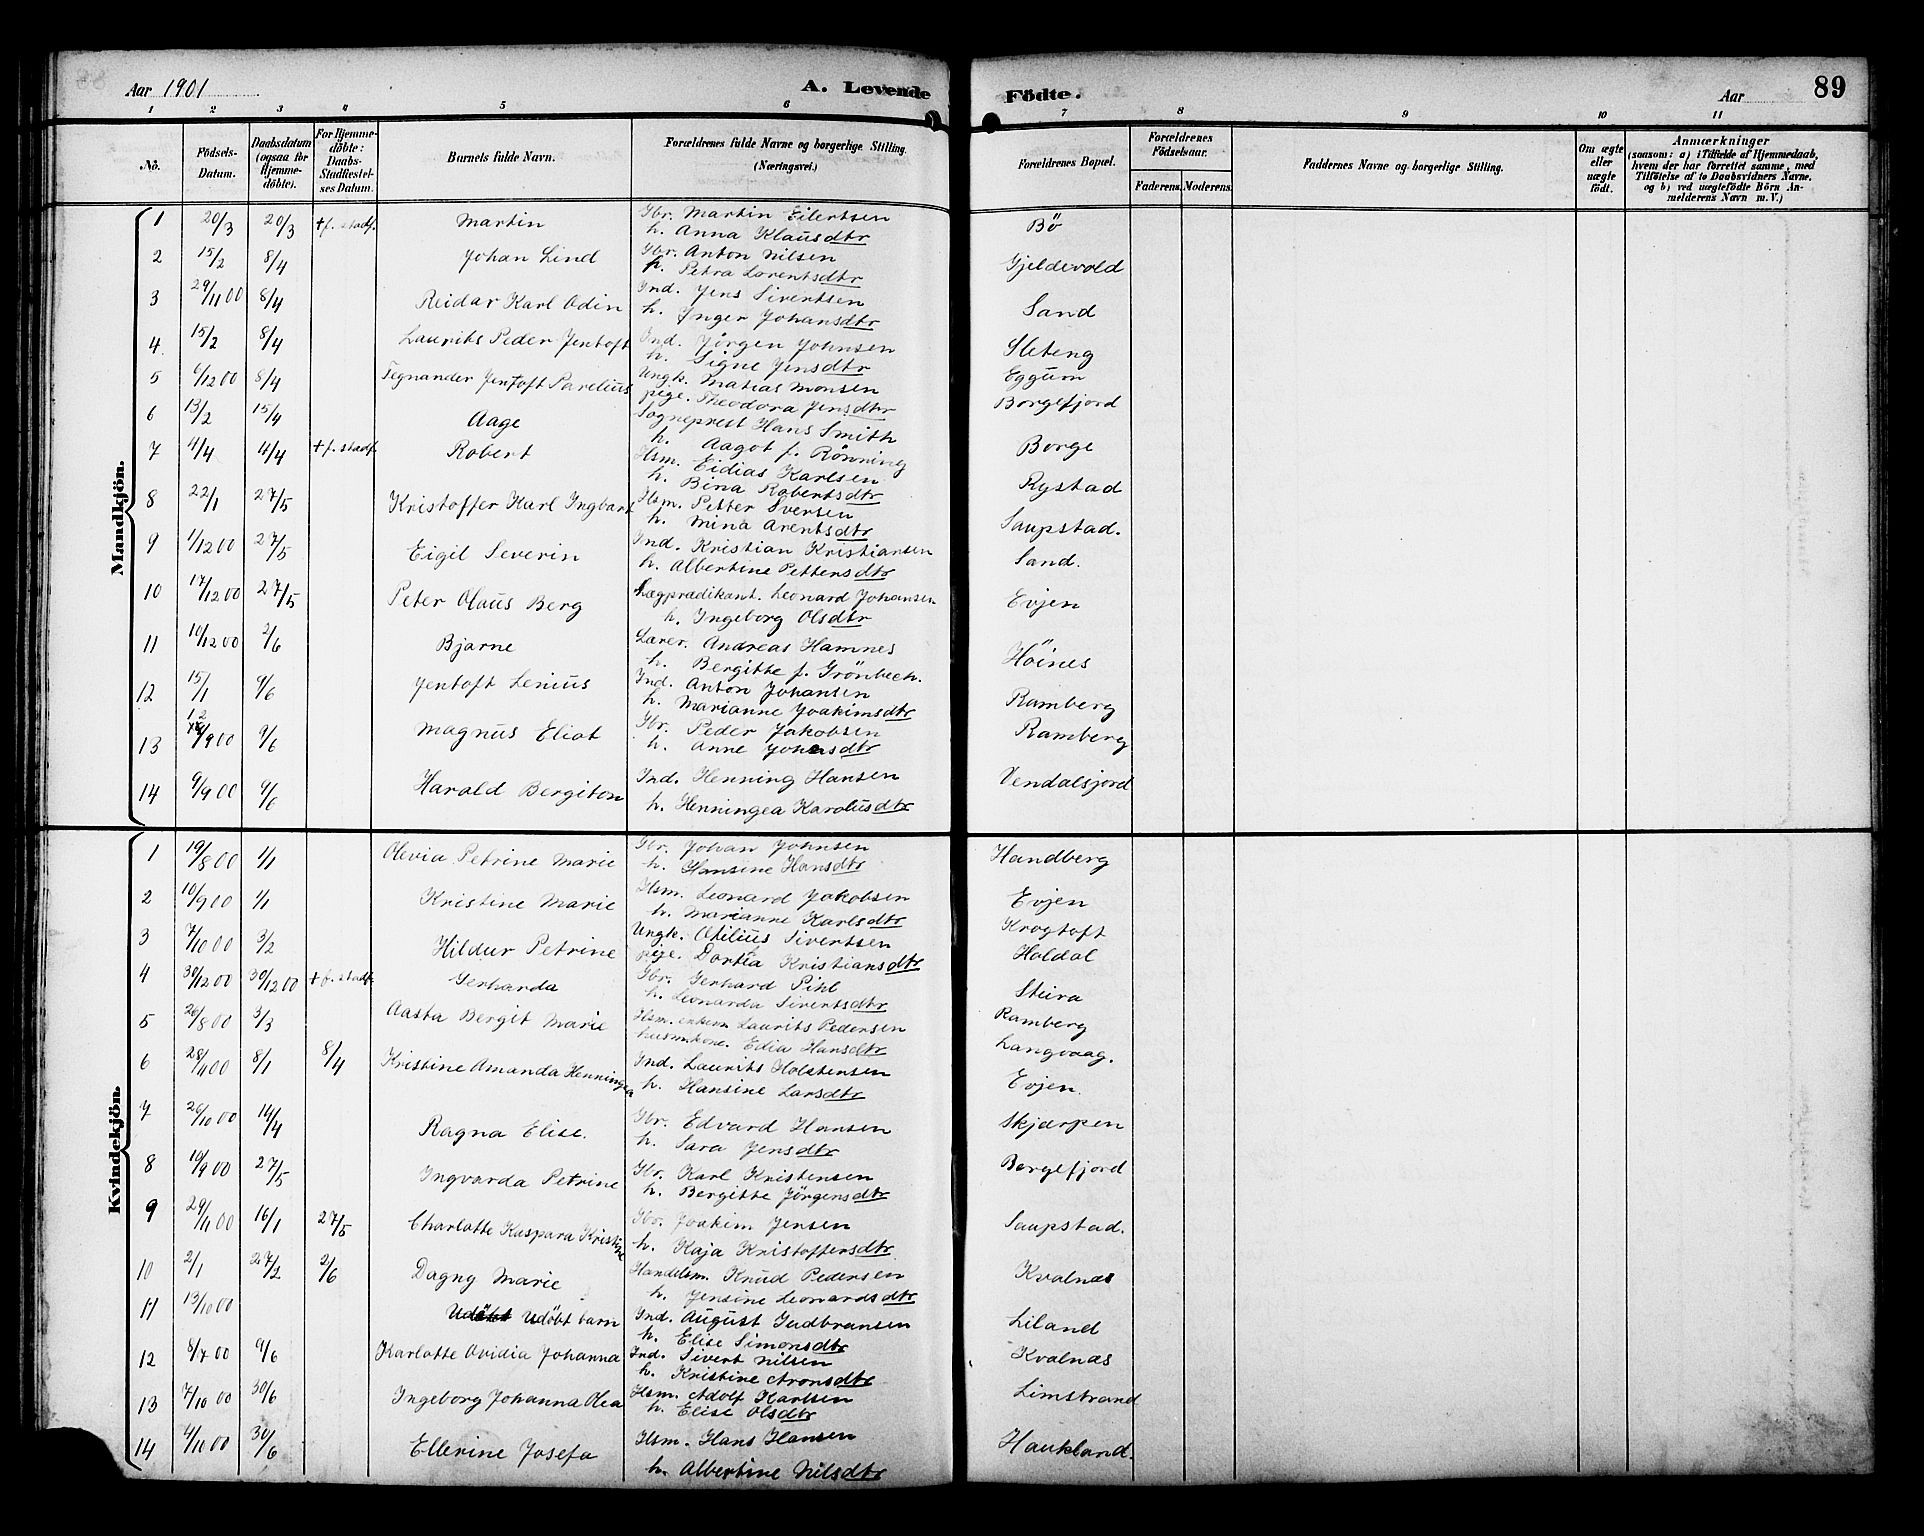 Aar 1901
A. Levende
Födte.
Aar
89
1 2 3 4 5 6 7 8 9 10 11
No.
Födsels-Datum.
Daabsdatum (ogsaa for Hjemmedöbte).
For Hjemmedöbte: Daabs-Stadfæstelses Datum.
Barnets fulde Navn.
Forældrenes fulde Navne og borgerlige Stilling. (Næringsvei.)
Forældrenes Bopæl.
Forældrenes Födselsaar.
Faderens. Moderens.
Faddernes Navne og borgerlige Stilling.
Om ægte eller uægte født.
Anmærkninger
(saasom: a) i Tilfælde af Hjemmedaab, hvem der har forrettet samme, med Tilföielse af to Daabsvidners Navne, og b) ved uægtefödte Börn Anmelderens Navn m. V.)
Mandkjön.
1 20/3 20/3 +f. stadf. Martin Gbr. Martin Eilertsen Bö
h. Anna Klausdtr
2 15/2 8/4 Johan Lind Gbr. Anton Nilsen Gjeldevold
h. Petra Lorentsdtr
3 29/11 00 8/4 Reidar Karl Odin Ind. Jens Sivertsen Sand
h. Inger Johansdtr
4 15/2 8/4 Laurits Peder Jentoft Ind. Jörgen Johnsen Sleteng
h. Signe Jensdtr
5 6/12 00 8/4 Tegnander Jentoft Parelius Ungk. Matias Monsen Eggum
pige. Theodora Jensdtr Borgefjord
6 13/2 15/4 Aage Sogneprest Hans Smith Borge
h. Aagot f. Rönning
7 4/4 4/4 +f. stadf. Robert Hsm. Eidias Karlsen Rystad
h. Bina Robertsdtr
8 22/1 27/5 Kristoffer Karl Ingbart Hsm. Petter Iversen Saupstad.
h. Mina Arentsdtr
9 1/12 00 27/5 Eigil Severin Ind. Kristian Kristiansen Sand.
h. Albertine Pettersdtr
10 17/12 00 27/5 Peter Olaus Berg Lægprædikant. Leonard Johansen Evjen
h. Ingeborg Olsdtr
11 10/12 00 2/6 Bjarne Lærer. Andreas Hamnes Höines
h. Bergitte f. Grönbech.
12 15/1 9/6 Jentoft Lenius Ind. Anton Johansen Ramberg
h. Marianne Joakimsdtr
13 12/9 00 9/6 Magnus Eliot Gbr. Peder Jakobsen Ramberg
h. Anne Johnsdtr
14 9/9 00 9/6 Harald Bergiton Ind. Henning Hansen Vendalsjord
h. Henningea Karolusdtr
Kvindekjön.
1 19/8 00 1/1 Olevia Petrine Marie Gbr. Johan Johnsen Handberg
h. Hansine Hansdtr
2 10/9 00 1/1 Kristine Marie Hsm. Leonard Jakobsen Evjen
h. Marianne Karlsdtr
3 7/10 00 3/2 Hildur Petrine Ungk. Otilius Sivertsen Krogtoft
pige. Dortea Kristiansdtr Holdal
4 30/12 00 30/12 00 +f. stadf. Gerharda Gbr. Gerhard Pihl Steira
h. Leonarda Sivertsdtr
5 26/8 00 3/3 Aasta Bergit Marie Hsm. enkem Laurits Pedersen Ramberg
husmkone. Edia Hansdtr Langvaag.
6 28/11 00 8/1 8/4 Kristine Amanda Henningea Ind. Laurits Holstensen Evjen
h. Hansine Larsdtr
7 26/10 00 14/4 Ragna Elise. Gbr. Edvard Hansen Skjærpen
h. Sara Jensdtr
8 19/9 00 27/5 Ingvarda Petrine Gbr. Karl Kristensen Borgefjord
h. Bergitte Jörgensdtr
9 29/11 00 16/1 27/5 Charlotte Kaspara Kristine Gbr. Joakim Jensen Saupstad.
h. Kaja Kristoffersdtr
10 2/1 27/2 2/6 Dagny Marie Handelsm. Knud Pedersen Kvalnæs
h. Jensine Leonardsdtr
11 13/10 00 Udöbt Udöbt barn Ind. August Gudbransen Liland
h. Elise Simonsdtr
12 8/7 00 9/6 Karlotte Ovidia Johanna Ind. Sivert Nilsen Kvalnæs
h. Kristine Aronsdtr
13 7/10 00 30/6 Ingeborg Johanna Olea Hsm. Adolf Karlsen Limstrand
h. Elise Olsdtr
14 4/10 00 30/6 Ellerine Josefa Hsm. Hans Hansen Haukland.
h. Albertine Nilsdtr